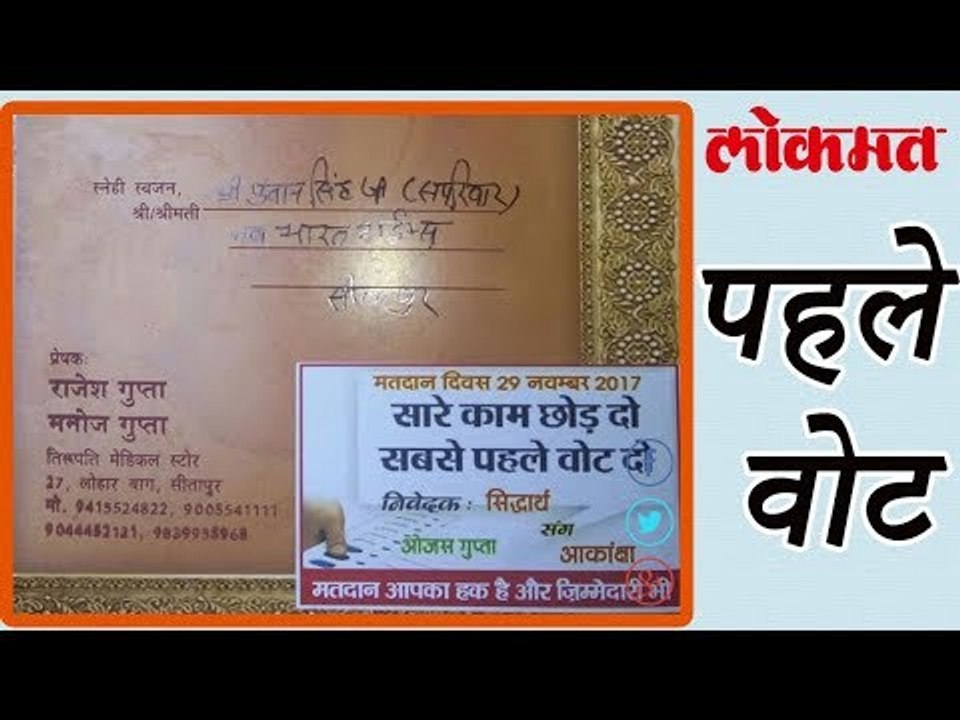 लोकमत
पहले
वोट
स्नेही स्वजन,
श्री/श्रीमती
सिंह जी (सपरिवार)
नव भारत टाईम्स
सीतापुर
प्रेषकः
राजेश गुप्ता
मनोज गुप्ता
तिरूपति मेडिकल स्टोर
27, लोहार बाग, सीतापुर
मो. 9415524822, 9005541111
9044452121, 9839995968
मतदान दिवस 29 नवम्बर 2017
सारे काम छोड़ दो
सबसे पहले वोट दो
निवेदक : सिद्धार्थ
संग
ओजस गुप्ता
आकांक्षा
मतदान आपका हक है और ज़िम्मेदारी भी